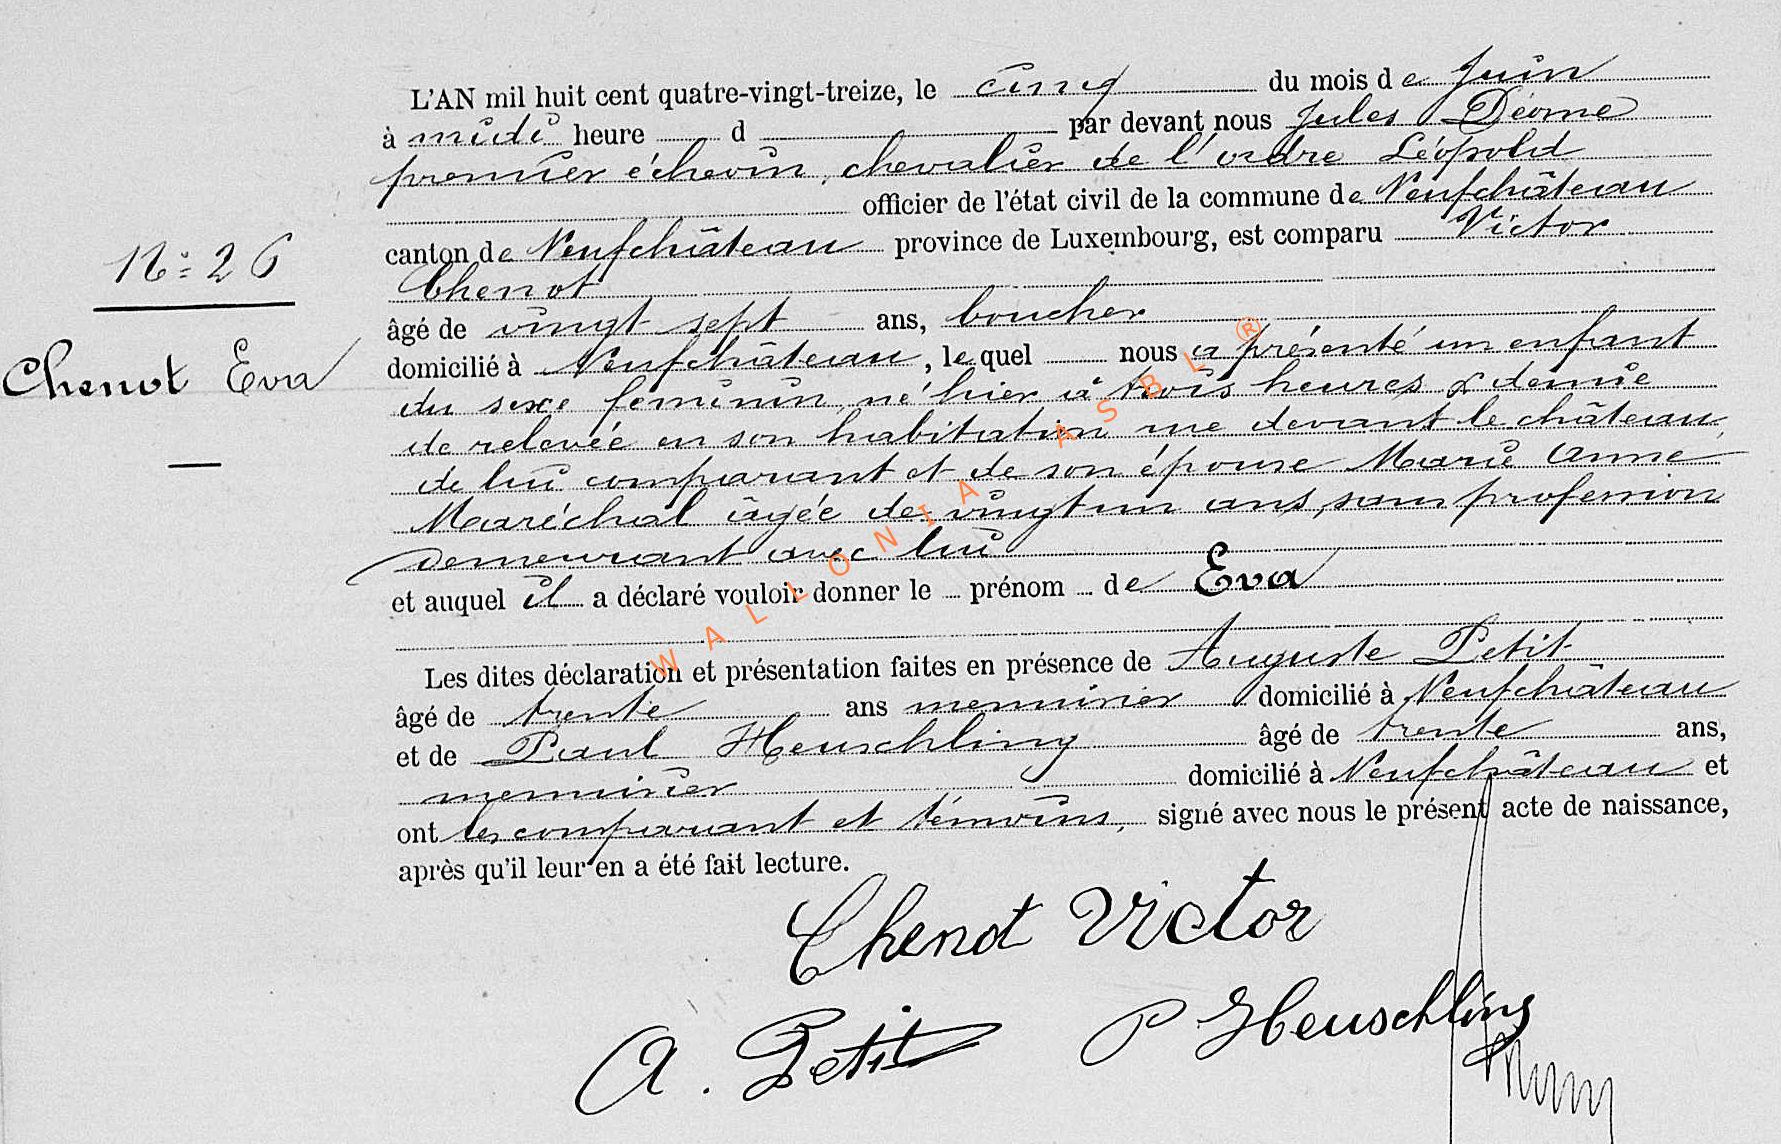 L'AN mil huit cent quatre-vingt-treize, le cinq du mois de Juin
à midi heure d par devant nous Jules Déome
premier échevin, chevalier de l'ordre Léopold
officier de l'état civil de la commune de Neufchâteau
canton de Neufchâteau province de Luxembourg, est comparu Victor
Chenot
N° 26
âgé de vingt sept ans, boucher
Chenot Eva
domicilié à Neufchâteau, lequel nous a présenté un enfant
du sexe féminin, né hier à trois heures & demie
de relevée en son habitation rue devant le château,
de lui comparant et de son épouse Marie Anne
Maréchal âgée de vingt un ans, sans profession
demeurant avec lui
et auquel il a déclaré vouloir donner le prénom de Eva
Les dites déclaration et présentation faites en présence de Auguste Petit
âgé de trente ans menuisier domicilié à Neufchâteau
et de Paul Heuschling âgé de trente ans,
menuisier domicilié à Neufchâteau et
ont les comparant et témoins, signé avec nous le présent acte de naissance,
après qu'il leur en a été fait lecture.
Chenot Victor
A. Petit P Heuschling
WALLONIA ASBL ®